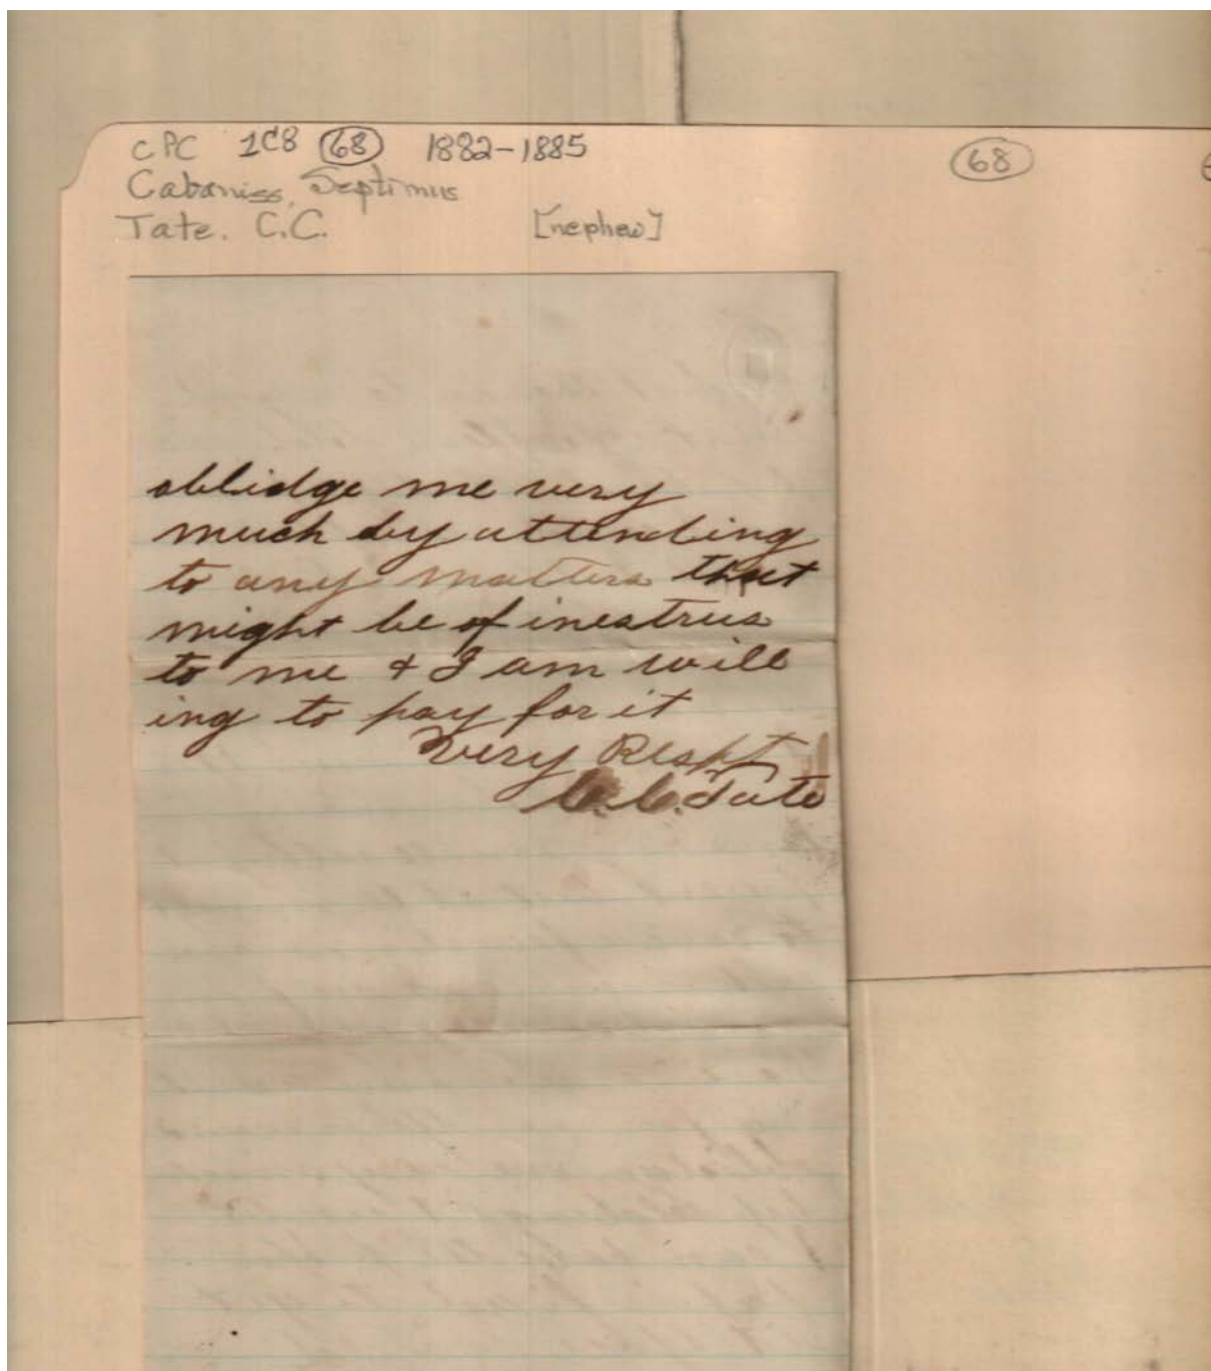 CPC 1C8 68 1882-1885
Cabaniss, Septimus
Tate. C.C. [nephew]
68
oblidge me very
much by attending
to any matters that
might be of inestrus
to me & I am will
ing to pay for it
Very Respt
C.C. Tate